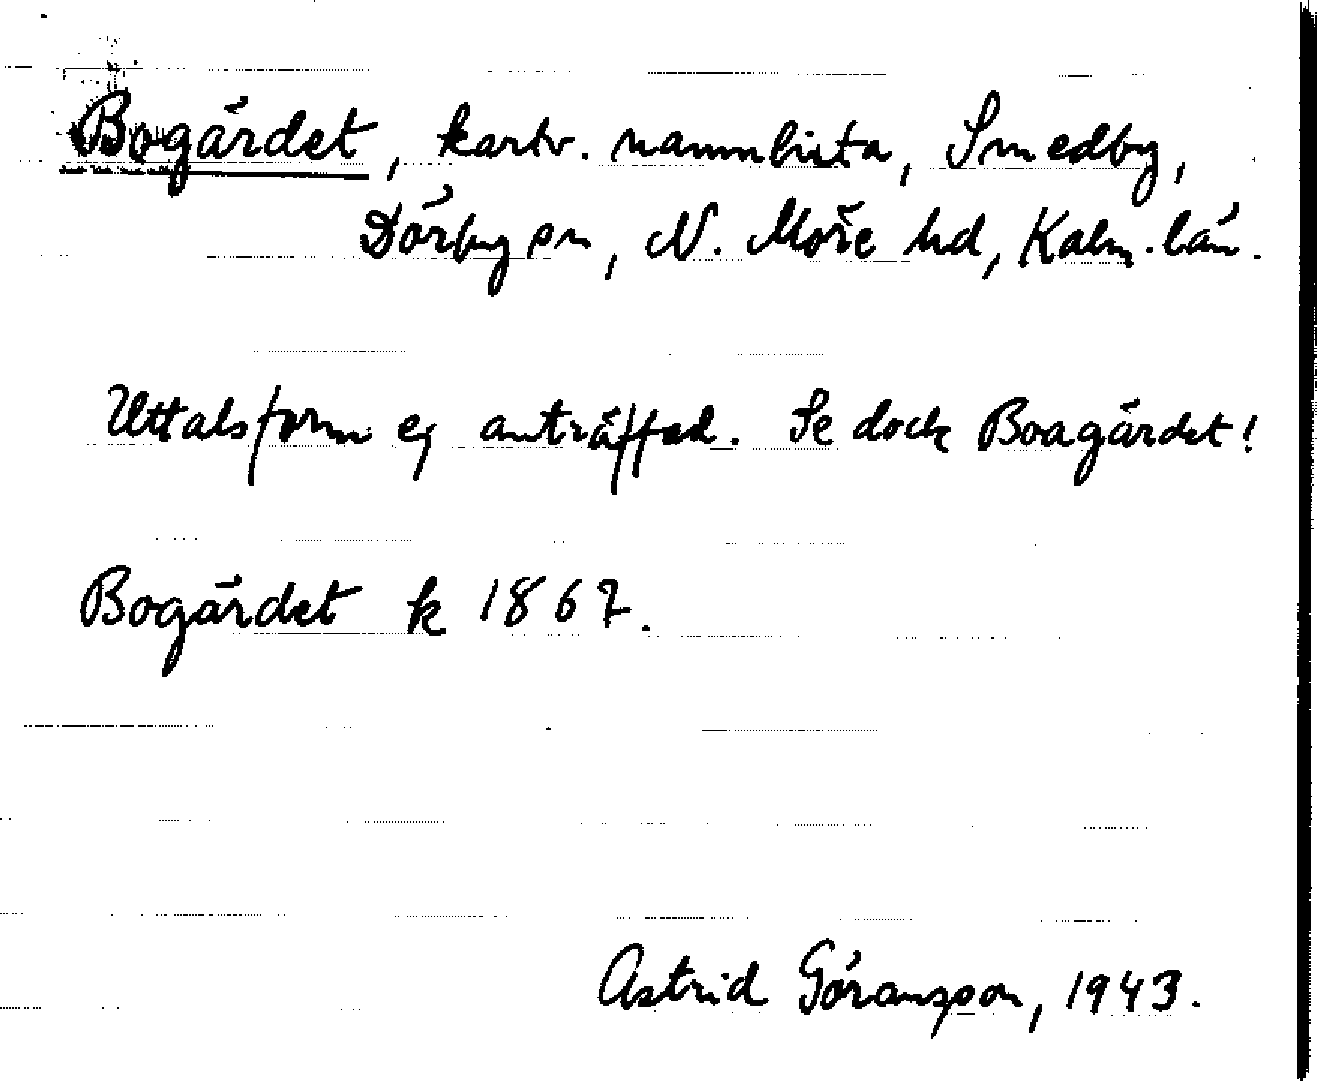 Bogärdet, kartv. namnlista, Smedby,
Dörby sn, N. Möre hd, Kalm. län.
Uttalsform ej anträffad. Se dock Boagärdet!
Bogärdet k 1867.
Astrid Göransson, 1943.